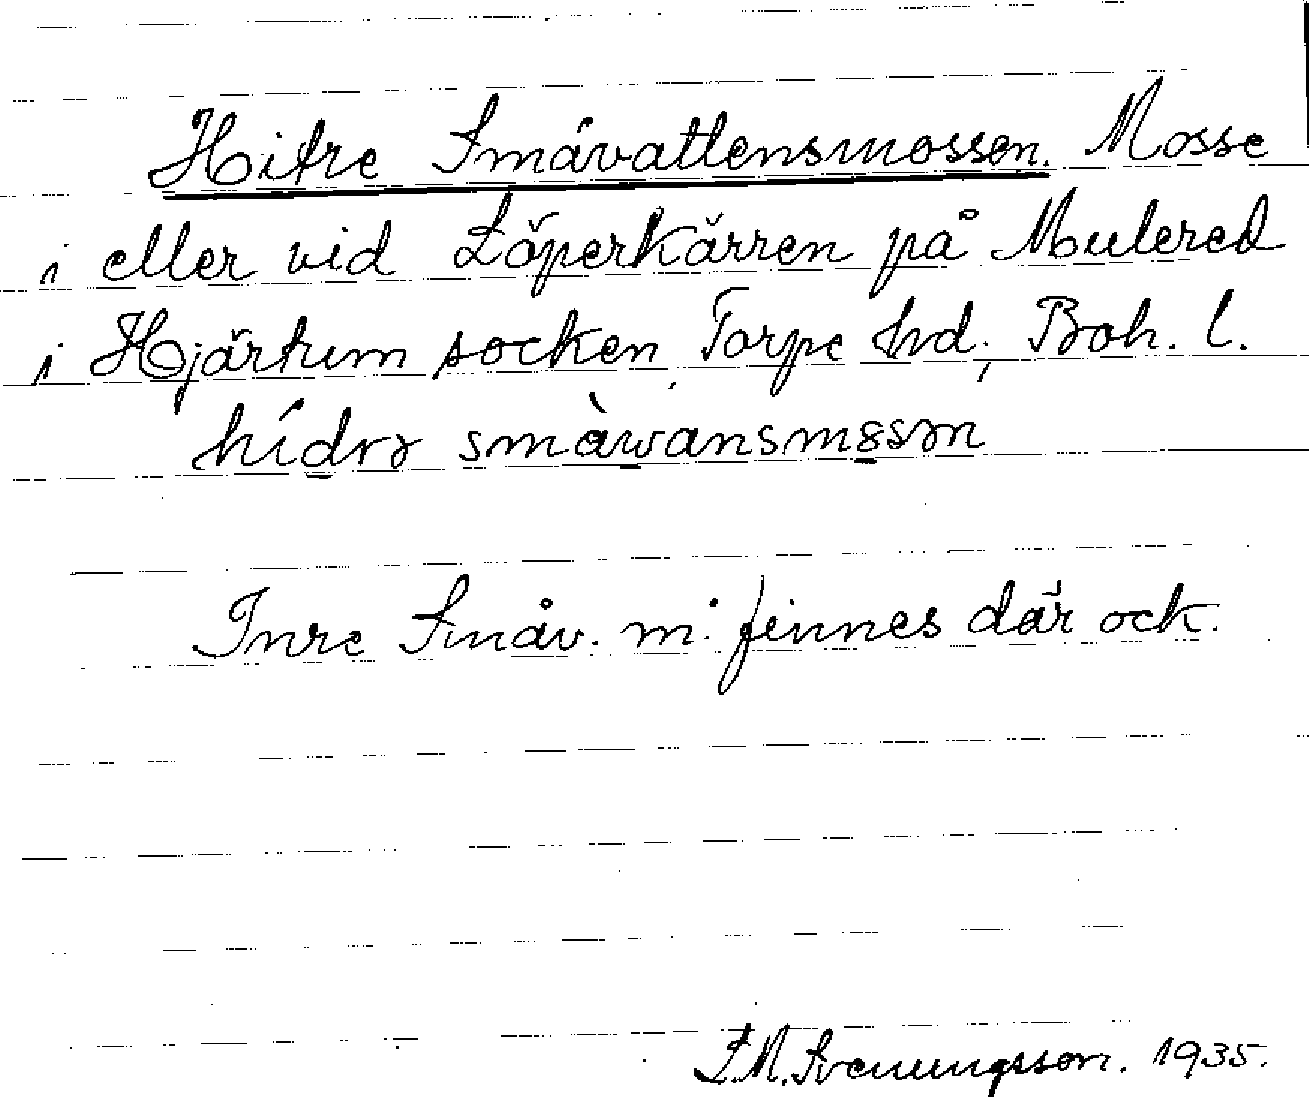 Hitre Småvattensmossen. Mosse
i eller vid Löperkärren på Mulered
i Hjärtum socken, Torpe hd; Boh. l.
hídrɘ småwansmɘsɘn
Inre Småv. m. finnes där ock.
L.M. Svenungsson. 1935.